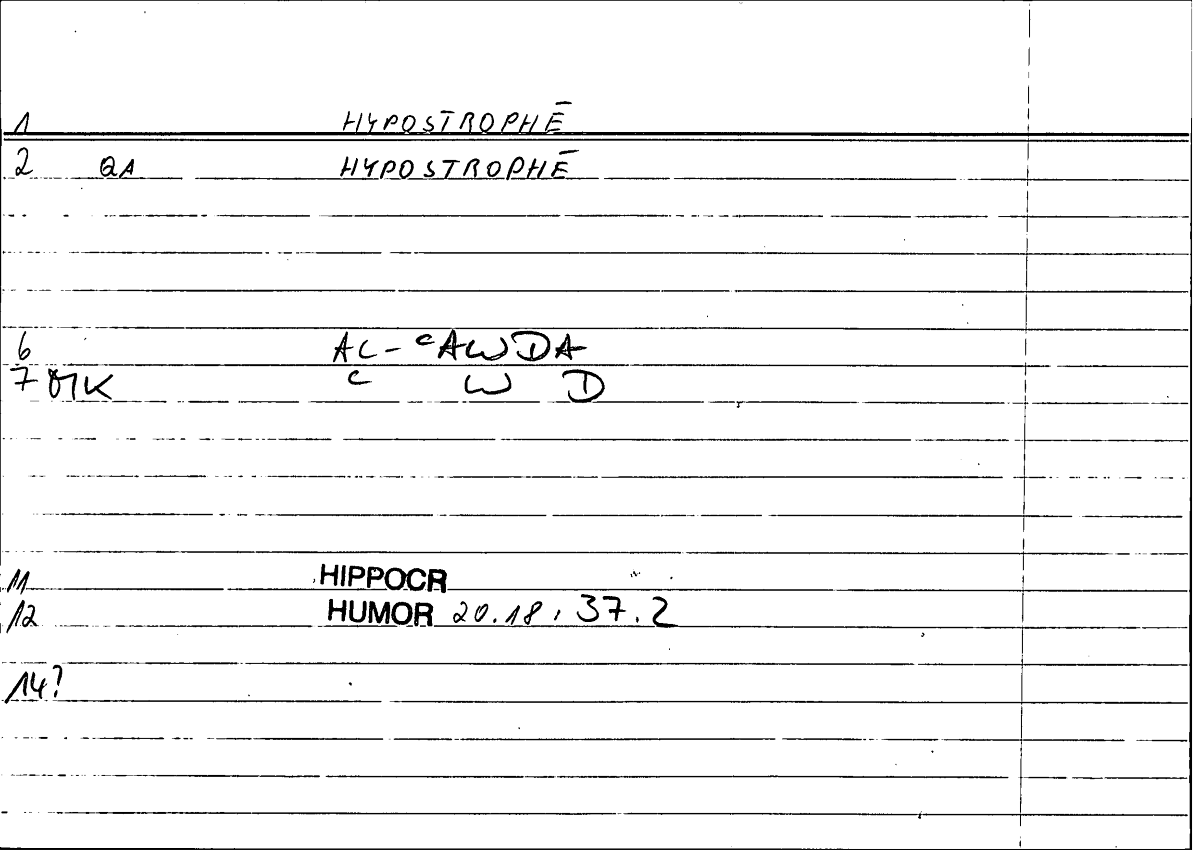 1 HYPOSTROPHĒ
2 QA HYPOSTROPHĒ
6 AL-ᶜAWDA
7 MK ᶜ W D
11 HIPPOCR
12 HUMOR 20.18, 37.2
14?